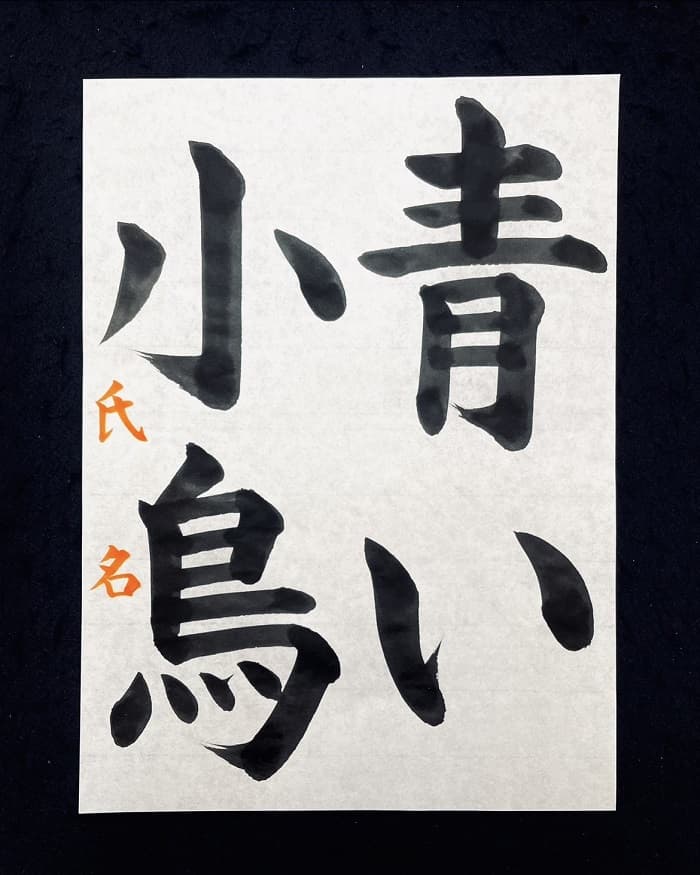 青い
小鳥
氏名